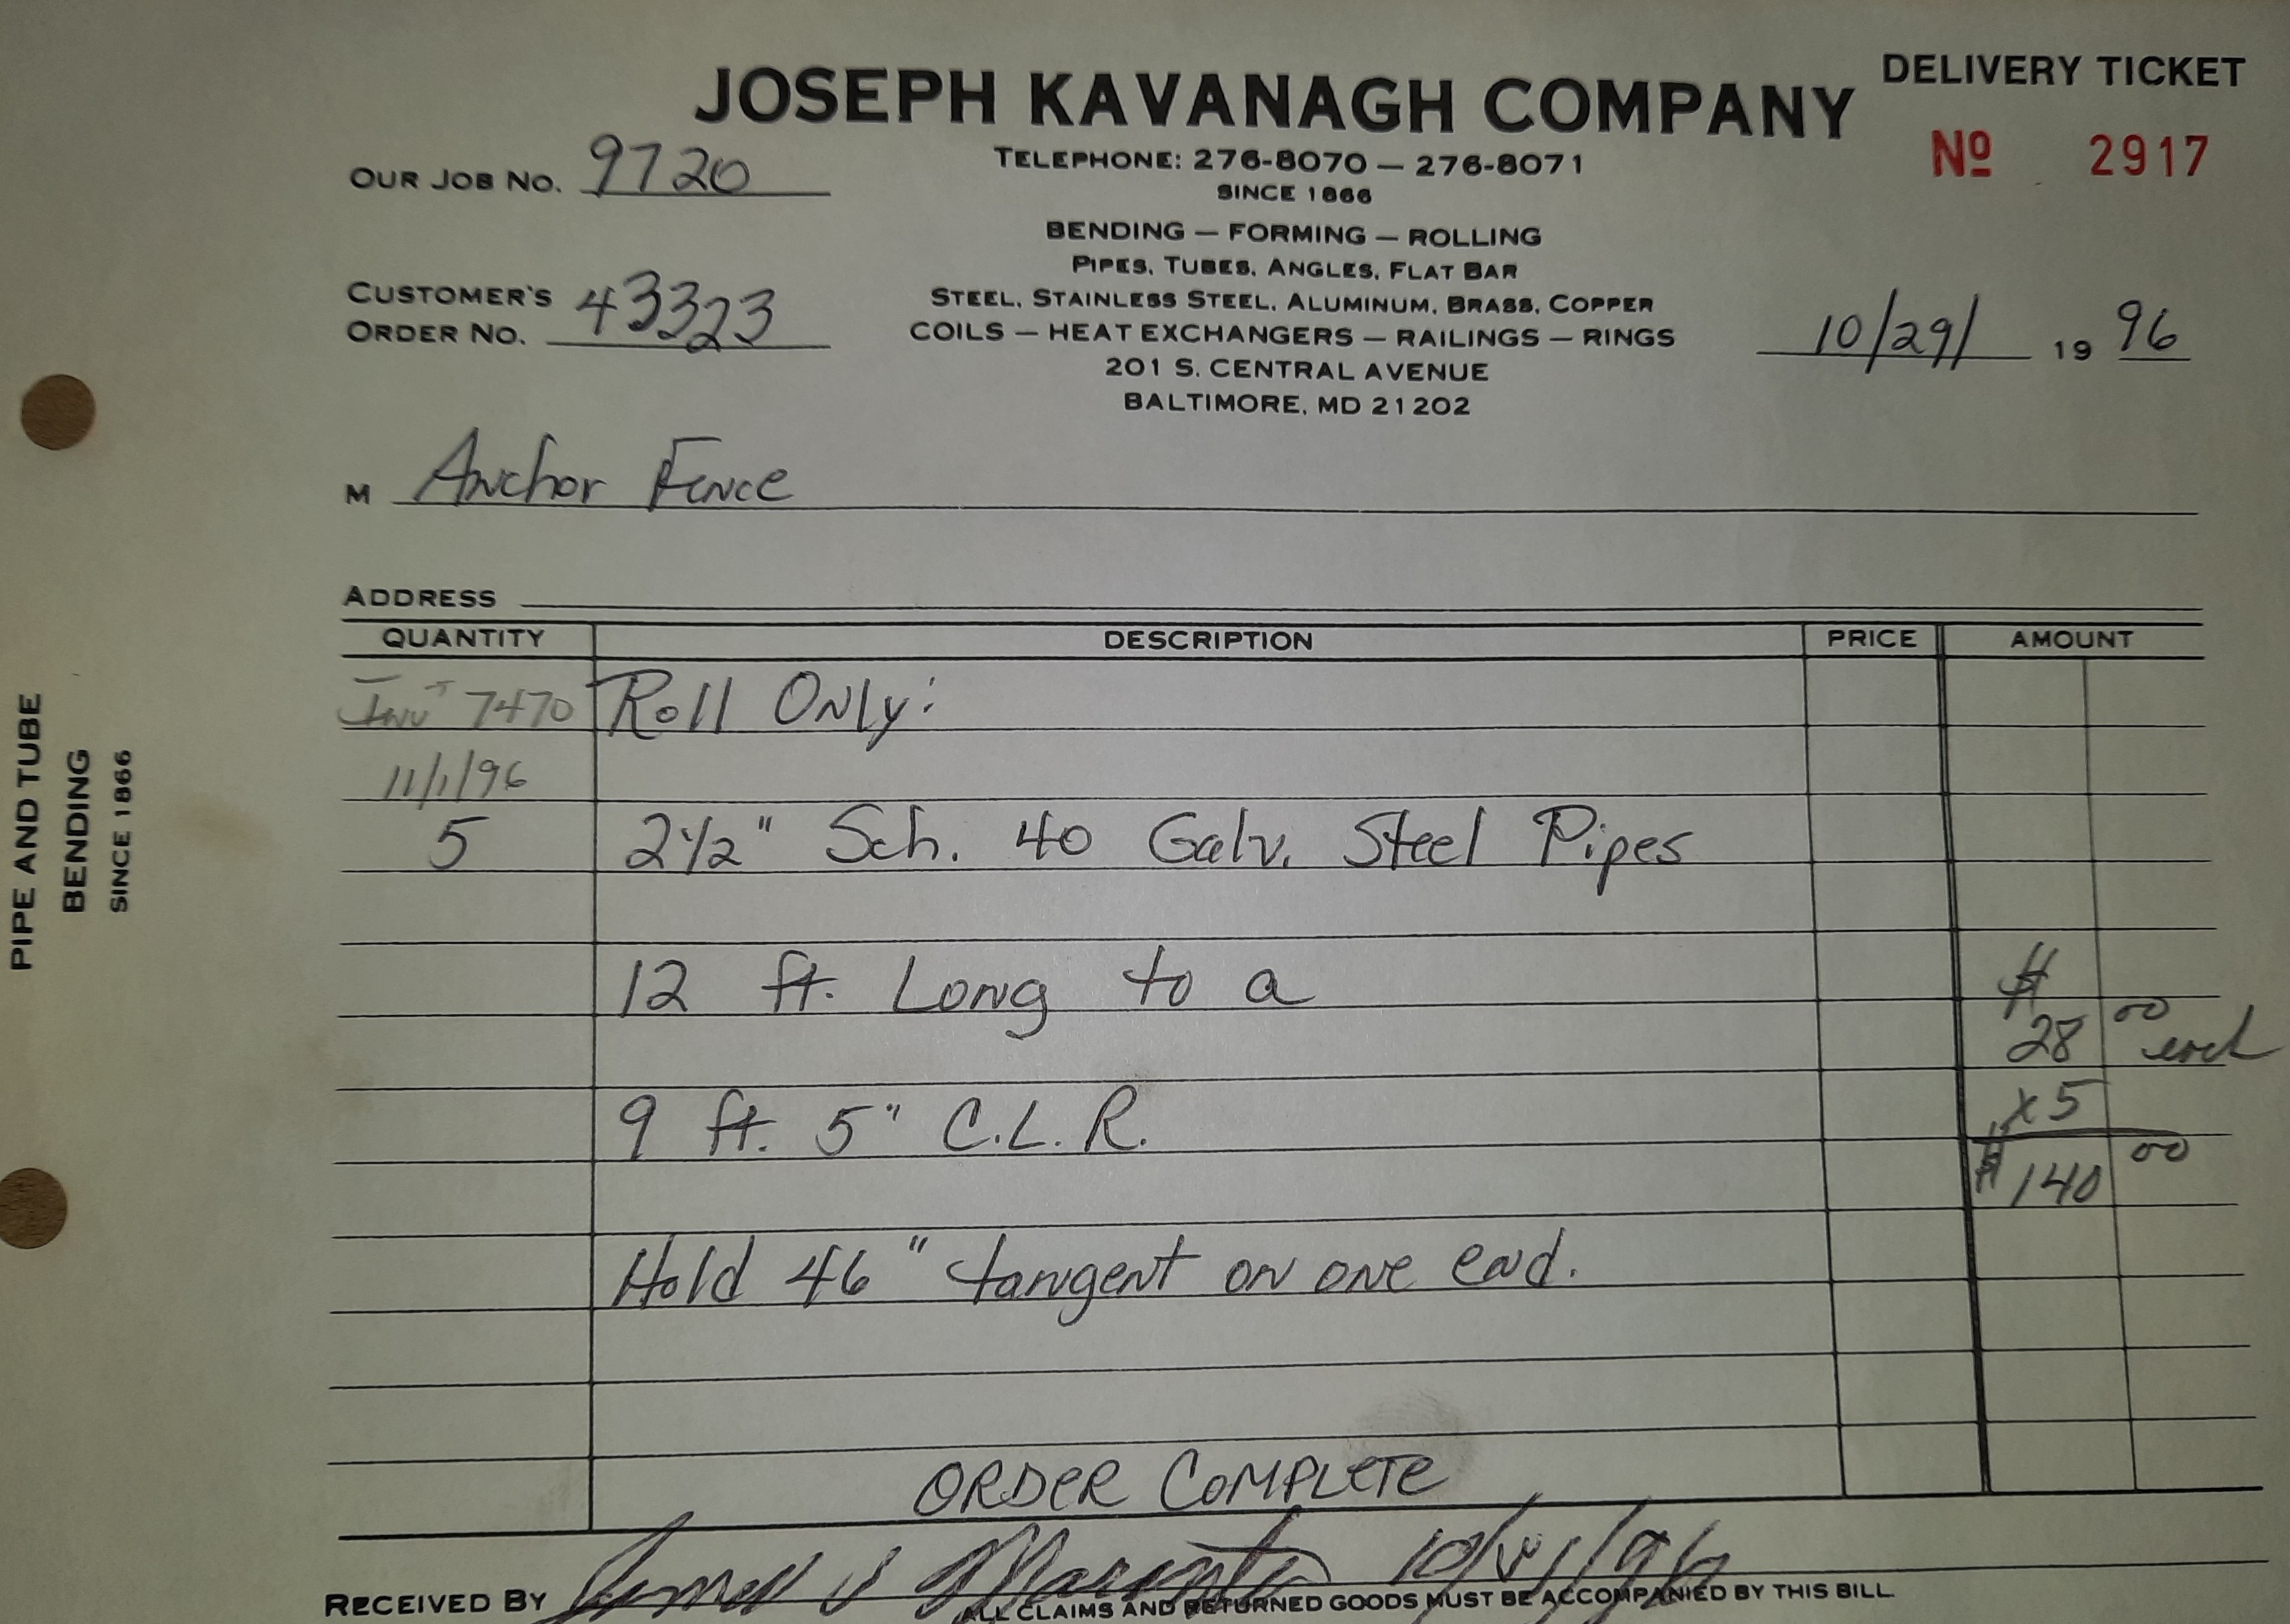 DELIVERY TICKET
JOSEPH KAVANAGH COMPANY
Nº 2917
OUR JOB NO. 9720
TELEPHONE: 276-8070 — 276-8071
SINCE 1866
BENDING — FORMING — ROLLING
PIPES, TUBES, ANGLES, FLAT BAR
CUSTOMER'S
ORDER NO. 43323
STEEL, STAINLESS STEEL, ALUMINUM, BRASS, COPPER
COILS — HEAT EXCHANGERS — RAILINGS — RINGS
10/29/ 19 96
201 S. CENTRAL AVENUE
BALTIMORE, MD 21202
M Anchor Fence
ADDRESS
QUANTITY DESCRIPTION PRICE AMOUNT
Inv 7470 Roll Only:
11/1/96
5 2½" Sch. 40 Galv. Steel Pipes
12 ft. Long to a
$
28 00 each
9 ft. 5" C.L.R.
x5
$140 00
Hold 46" tangent on one end.
ORDER COMPLETE
RECEIVED BY
ALL CLAIMS AND RETURNED GOODS MUST BE ACCOMPANIED BY THIS BILL.
PIPE AND TUBE
BENDING
SINCE 1866